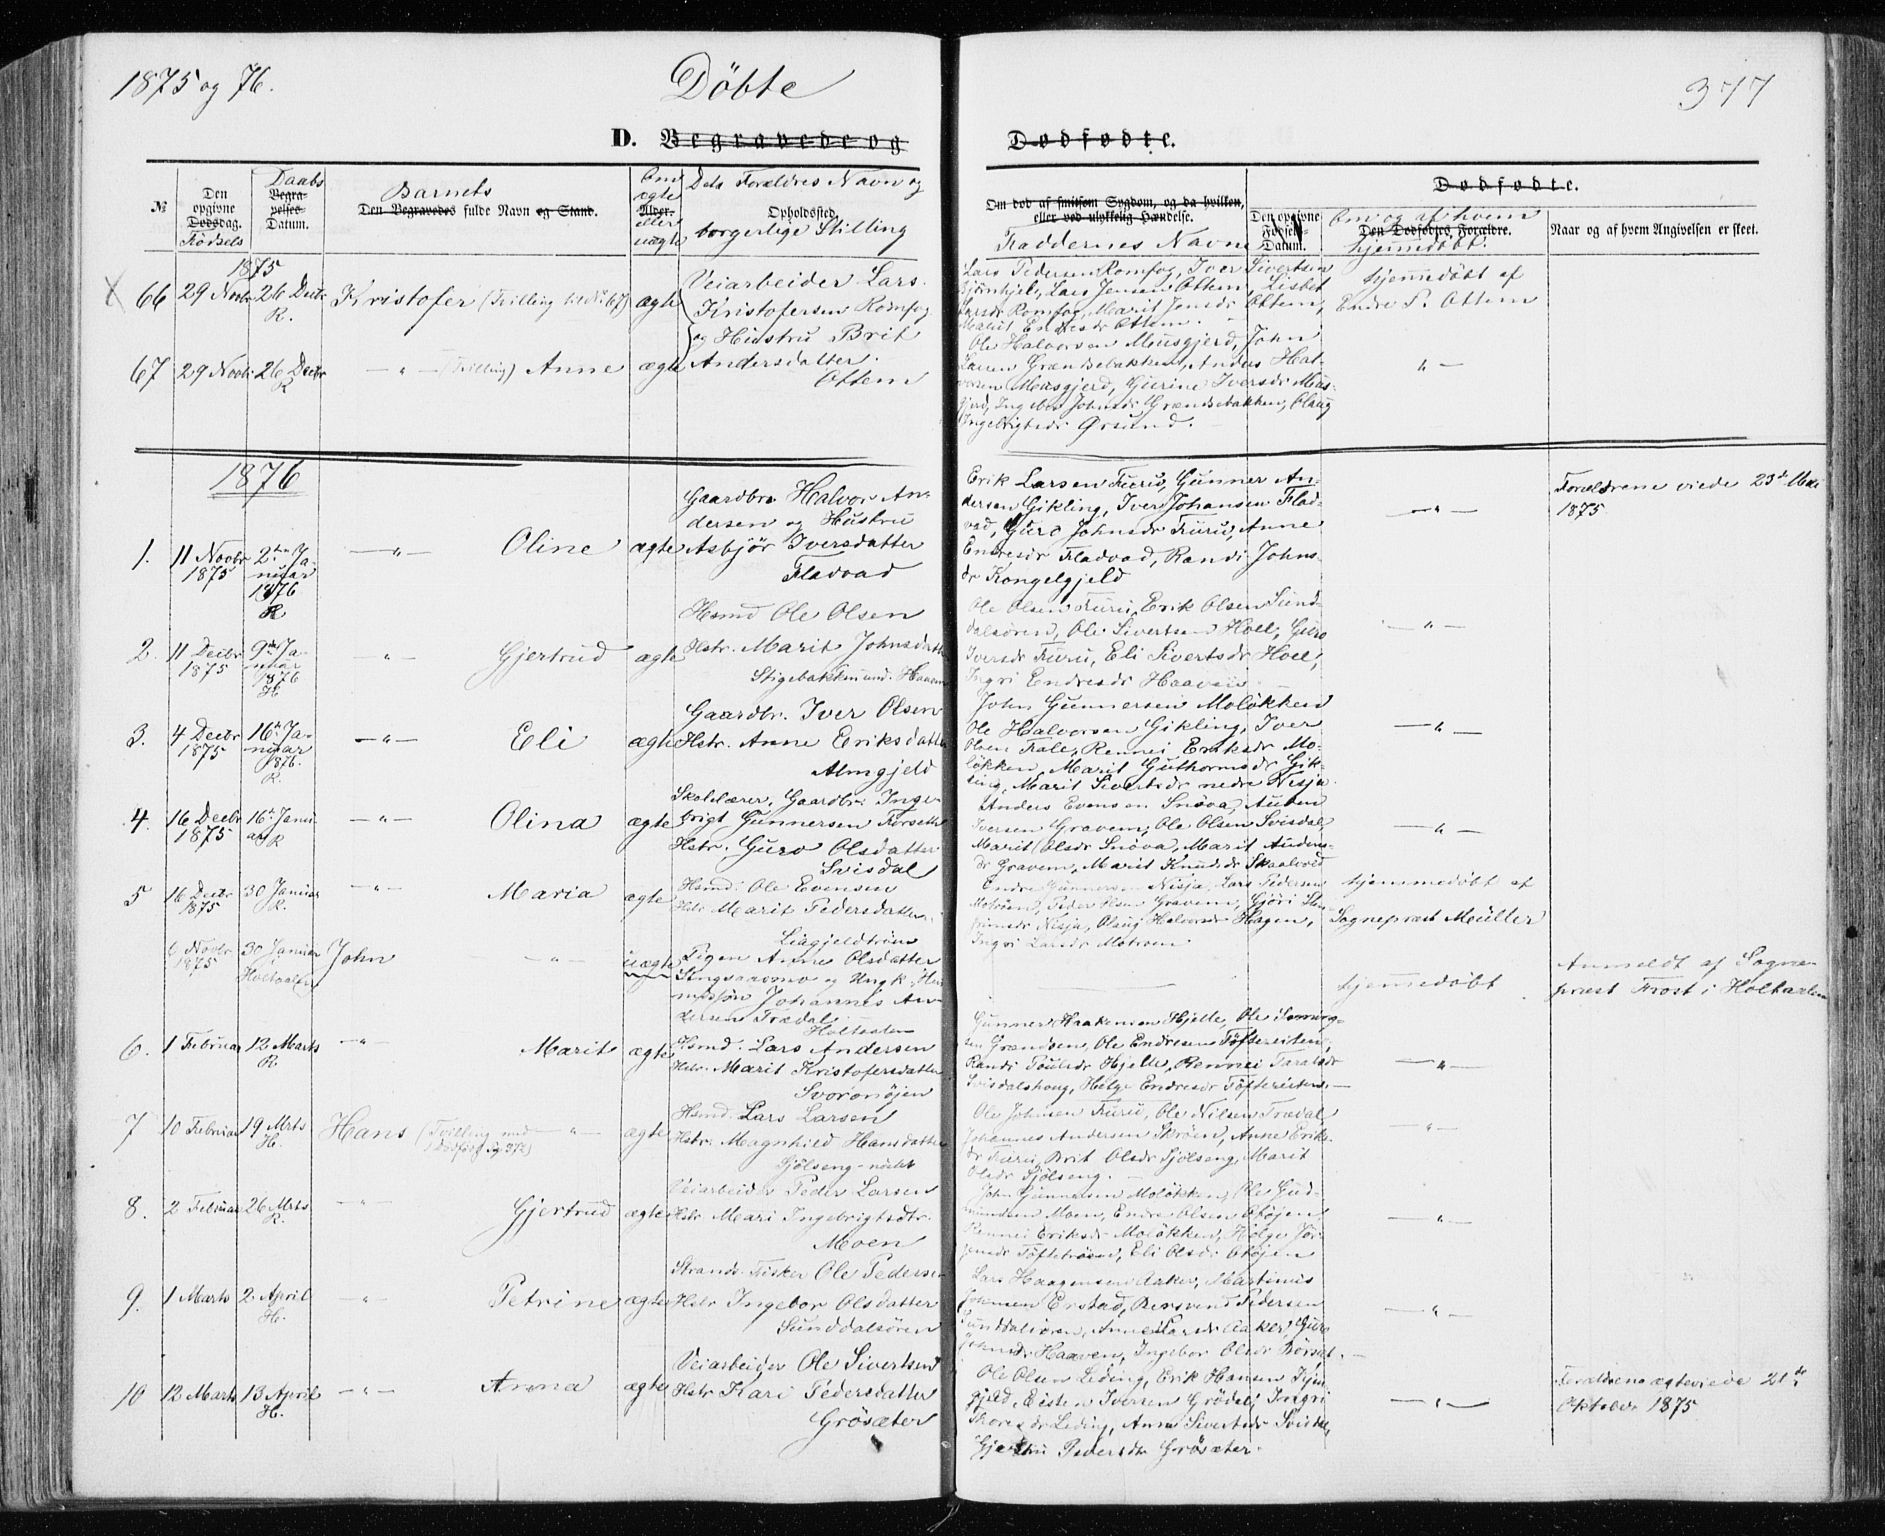 1875 og 76.
Döbte
377
D. Begravede og
Dødfødte.
№
Den opgivne Dødsdag. Födsels
Daabs Begravelses-Datum.
Barnets
Den Begravedes fulde Navn og Stand.
Om ægte eller uægte
Alder.
Dets Forældres Navn og
Opholdssted.
borgerlige Stilling
Om død af smitsom Sygdom, og da hvilken,
eller ved ulykkelig Hændelse.
Faddernes Navne
Den opgivne Fødsels-Datum.
Dødfødte.
Om og af hvem
Den Dødfødtes Forældre.
hjemmedöbt.
Naar og af hvem Angivelsen er skeet.
1875
66 29 Novbr 26 Decbr R. Kristofer (Tvilling til No 67) ægte
Veiarbeider Lars
Kristofersen Romfog
og Hustru Brit
Andersdatter
Ottem
Lars Pedersen Romfog, Iver Sivertsen
Lars Jensen Ottem, Lisbet
Larsdr Romfog, Marit Jensdr Ottem,
Marit Endresdr Ottem.
hjemmedöbt af
Endre P. Ottem
67 29 Novbr 26 Decbr R — " — (Tvilling) Anne ægte
Ole Halvorsen Musgjerd, John
Larsen Grændsebakken, Anders Hal-
vorsen Musgjerd, Gurine Iversdr Mus-
gjerd, Ingebor Johnsdr Grændsebakken, Olaug
Ingebrigtsdr Grsund.
" —
1876
1. 11 Novbr 1875 2den Januar 1876 R — " — Oline ægte
Gaardbr. Halvor An-
dersen og Hustru
Asbjør Iversdatter
Fladvad
Erik Larsen Furu, Gunner An-
dersen Gikling, Iver Johansen Flad-
vad, Guro Johnsdr Furu, Anne
Endresdr Fladvad, Randi Johns-
dr Kongelgjeld
— " —
Forældrene viede 23de Mai
1875
2. 11 Decbr 1875 9de Januar 1876 H. — " — Gjertrud ægte
Hsmd Ole Olsen
Hstr. Marit Johnsdatter
Stigebakken und. Haaven
Ole Olsen Furu, Erik Olsen Sund-
dalsören, Ole Sivertsen Hoel, Guro
Iversdr Furu, Eli Sivertsdr Hoel,
Ingri Endresdr Haaven
— " —
3. 4 Decbr 1875 16de Januar 1876. R. — " — Eli ægte
Gaardbr. Iver Olsen
Hstr. Anne Eriksdatter
Almgjeld
John Gunnersen Moløkken
Ole Halvorsen Gikling, Iver
Olsen Fale, Rennei Eriksdr Mo-
løkken, Marit Guthormsdr Gik-
ling, Marit Sivertsdr nedre Nisja
— " —
4. 16 Decbr 1875 16de Januar R — " — Olina ægte
Skolelærer, Gaardbr. Inge-
brigt Gunnersen Forseth
Hstr. Guro Olsdatter
Svisdal
Anders Evensen Snöva, Auden
Iversen Gravem, Ole Olsen Svisdal,
Marit Olsdr Snöva, Marit Audens-
dr Gravem, Marit Knudsdr Skaalvold
— " —
5 16 Decbr 1875 30 Januar R. — " — Maria ægte
Hsmd. Ole Evensen
Hstr Marit Pedersdatter
Liagjeldtröen
Endre Gunnersen Nisja, Lars Pedersen
Motröen, Peder Olsen Gravem, Gjöri Stenfinnsdr Nisja, Olaug Halvorsdr Hagen,
Ingri Larsdr Motröen
hjemmedöbt af
Sognepræst Meülter
6 Novbr 1875 30 Januar i Holtaalen John — " — uægte
Pigen Anne Olsdatter
og Ungk.
Johannes An-
dersen Trædal
Holtaalen
hjemmedöbt
Anmeldt af Sogne-
præst Frost i Holtaalen
6. 1 Februar 12 Marts R — " — Marit ægte
Hsmd. Lars Andersen
Hstr. Marit Kristofersdatter
Svoronöjen
Gunner Haakensen Hjelle, Ole
Grændsen, Ole Endresen Töftereiten,
Randi Poulsdr Hjelle, Rennei Taraldsdr
Svisdalshoug, Helge Endresdr Töftereiten. —
— " —
7 10 Februar 19 Mrts H. Hans (Tvilling med Dødfödt Pag 372) — " — ægte
Hsmd. Lars Larsen
Hstr. Magnhild Hansdatter
Sjölseng
Ole Johnsen Furu, Ole Nilsen Trædal,
Johannes Andersen Skröen, Anne Eriks-
dr Furu, Brit Olsdr Sjölseng, Marit
Olsdr Sjölseng.
— " —
8. 2 Februar 26 Mrts R. — " — Gjertrud ægte
Veiarbeider Peder Larsen
Hstr Mari Ingebrigtsdtr.
Moen
John Gunnersen Moløkken, Ole Gud-
mundsen Moen, Endre Olsen
Rennei Eriksdr Moløkken, Helge Jör-
gensdr Töftetröen, Eli Olsdr
— " —
9. 1 Marts 2 April H. — " — Petrine ægte
Strands. Fisker Ole Pedersen
Hstr Ingebor Olsdatter
Sunddalsören
Lars Haagensen Aaker, Martinus
Johnsen Erstad, Rensvend Pedersen
Sunddalsören, Anne Larsdr Aaker, Guro
Johnsdr Haaven, Ingebor Olsdr Börset. —
— " —
10 12 Marts 13 April H. — " — Anna ægte
Veiarbeider Ole Sivertsen
Hstr Kari Pedersdatter
Grösæter
Ole Olsen Leding, Erik Hansen
gjeld, Eisten Iversen Grödal, Ingri
Thoresdr Leding, Anne Sivertsdr
Gjertru Pedersdr Grösæter.
— " —
Forældrene ægteviede 21de
Oktober 1875